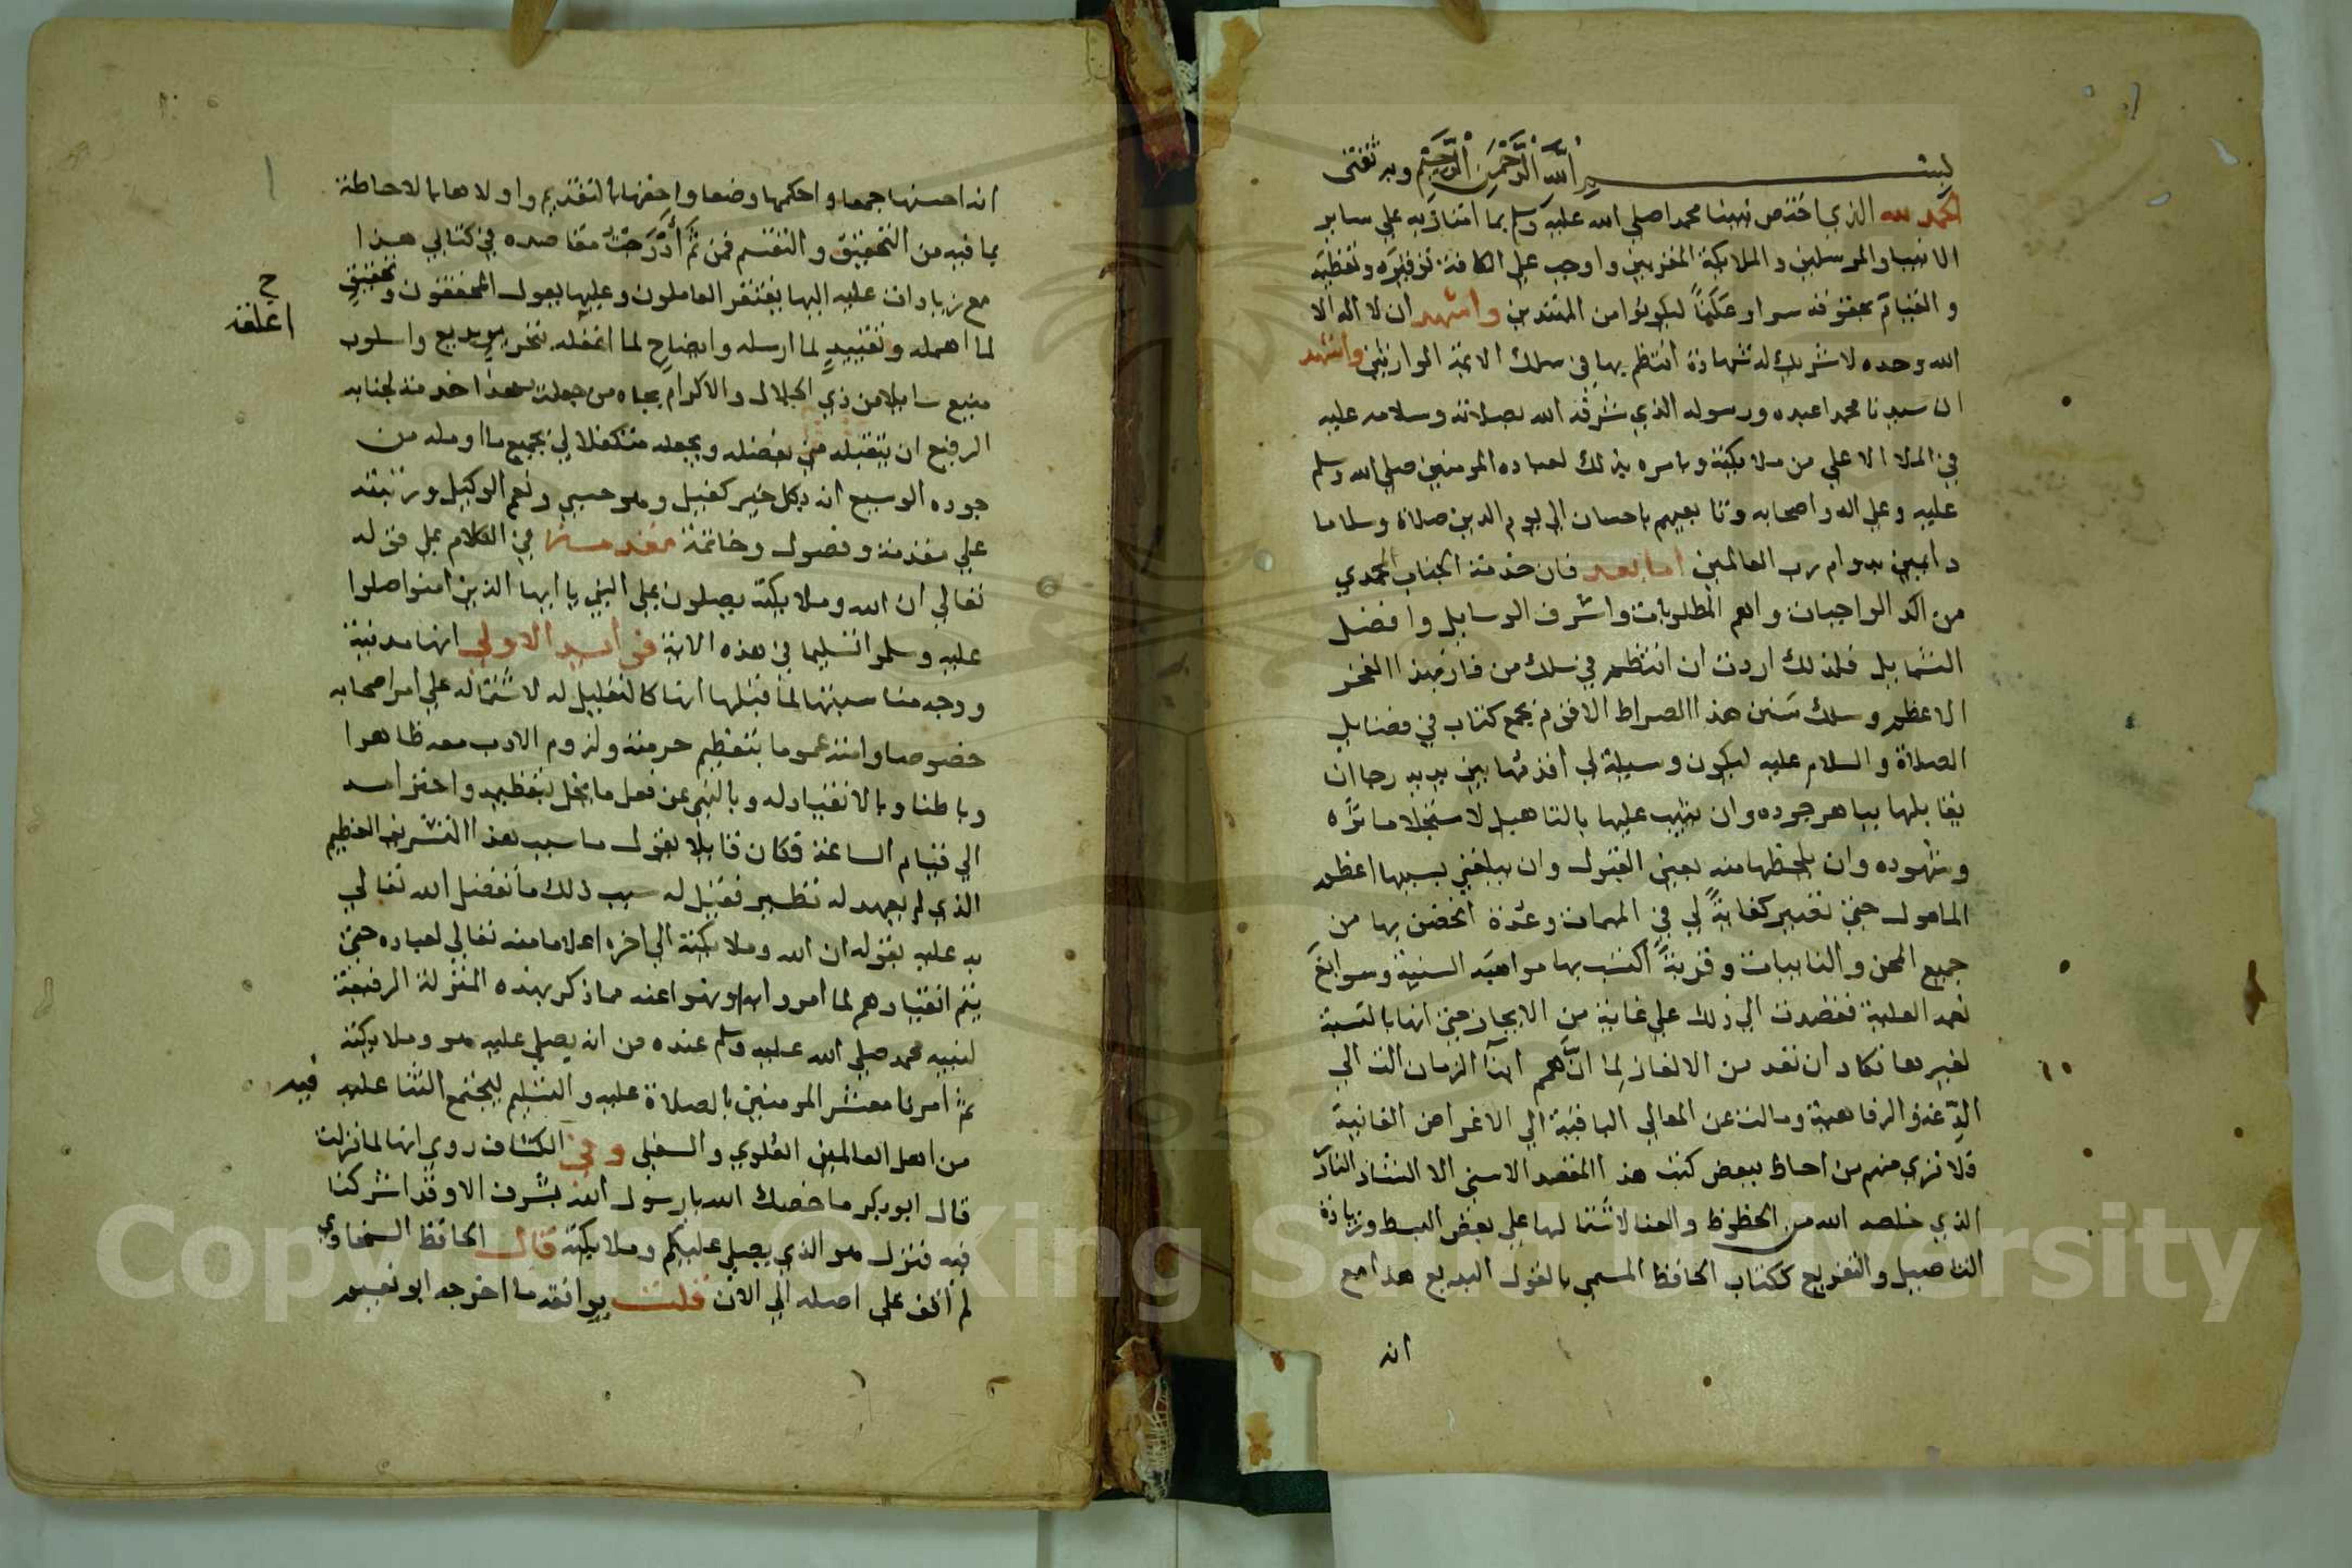 بسم الله الرحمن الرحيم وبه ثقتي
الحمد لله الذي اختص نبينا محمدا صلي الله عليه وسلم بما امتاز به علي ساير
الانبيا والمرسلين والملايكة المقربين واوجب علي الكافة توقيره وتعظيمه
والقيام بحقوقه سرا وعلنا ليكونوا من المهتدين واشهد ان لا اله الا
الله وحده لا شريك له شهادة انتظم بها في سلك الايمة الوارثين واشهد
ان سيدنا محمدا عبده ورسوله الذي شرفه الله بصلاته وسلامه عليه
في الملا الاعلي من ملايكته وبامره بذلك لعباده المومنين صلي الله وسلم
عليه وعلي اله واصحابه وتابعيهم باحسان الي يوم الدين صلاة وسلاما
دايمين بدوام رب العالمين اما بعد فان خدمة الجناب المحمدي
من اكد الواجبات واهم المطلوبات واشرف الوسايل وافضل
الشمايل فلذلك اردت ان انتظم في سلك من فاز بهذا الفخر
الاعظم وسلك سنن هذا الصراط الاقوم بجمع كتاب في فضايل
الصلاة والسلام عليه ليكون وسيلة لي اقدمها بين يديه رجا ان
يقابلها بباهر جوده وان يثيب عليها بالتاهيل لاستجلا ماثره
وشهوده وان يلحظها منه بعين القبول وان يبلغني بسببها اعظم
المامول حتي تصير كفاية لي في المهمات وعدة اتحصن بها من
جميع المحن والنايبات وقربة اكتسب بها مواهبه السنية وسوابغ
نعمه العلية فقصدت الي ذلك علي غاية من الايجاز حتي انها بالنسبة
لغيرها تكاد ان تعد من الالغاز لما ان همم ابنا الزمان الت الي
الدعة والرفاهية ومالت عن المعالي الباقية الي الاغراض الفانية
فلا تري منهم من احاط ببعض كتب هذا المقصد الاسني الا الشاذ الناد
الذي خلصه الله من الحظوظ والعنا لاشتمالها علي بعض البسط وزيادة
التاصيل والتفريع ككتاب الحافظ المسمي بالقول البديع هذا مع
انه
انه احسنها جمعا واحكمها وضعا واحقها بالتقديم واولاها بالاحاطة
بما فيه من التحقيق والتقسيم فمن ثم ادرجت مقاصده في كتابي هذا
مع زيادات عليه اليها يفتقر العاملون وعليها يعول المحققون وتحقيق
لما اهمله وتقييد لما ارسله وايضاح لما اغفله بتحرير بديع واسلوب
ح
اغلقه
منيع سايلا من ذي الجلال والاكرام بجاه من جعلت هذا خدمة لجنابه
الرفيع ان يتقبله مني بفضله ويجعله متكفلا لي بجميع ما اومله من
جوده الوسيع انه بكل خير كفيل وهو حسبي ونعم الوكيل ورتبته
علي مقدمة وفصول وخاتمة مقدمة في الكلام علي قوله
تعالي ان الله وملايكته يصلون علي النبي يا ايها الذين امنوا صلوا
عليه وسلموا تسليما في هذه الاية فوايد الاولي انها مدنية
ووجه مناسبتها لما قبلها انها كالتعليل له لاشتماله علي امر اصحابه
خصوصا وامته عموما بتعظيم حرمته ولزوم الادب معه ظاهرا
وباطنا وبالانقياد له وبالنهي عن فعل ما يخل بتعظيمه واحترامه
الي قيام الساعة فكان قايلا يقول ما سبب هذا التشريف العظيم
الذي لم يعهد له نظير فقيل له سبب ذلك ما تفضل الله تعالي
به عليه بقوله ان الله وملايكته الي اخره اعلاما منه تعالي لعباده حتي
يتم انقيادهم لما امروا به ونهوا عنه مما ذكر بهذه المنزلة الرفيعة
لنبيه محمد صلي الله عليه وسلم عنده من انه يصلي عليه هو وملايكته
ثم امرنا معشر المومنين بالصلاة عليه والتسليم ليجتمع الثنا عليه
فيه
من اهل العالمين العلوي والسفلي وفي الكشاف روي انها لما نزلت
قال ابو بكر ما خصك الله يا رسول الله بشرف الا وقد اشركنا
فيه فنزل هو الذي يصلي عليكم وملايكته قال الحافظ السخاوي
لم اقف علي اصله الي الان قلت يوافقه ما اخرجه ابو نعيم
Copyright © King Saud University
1957